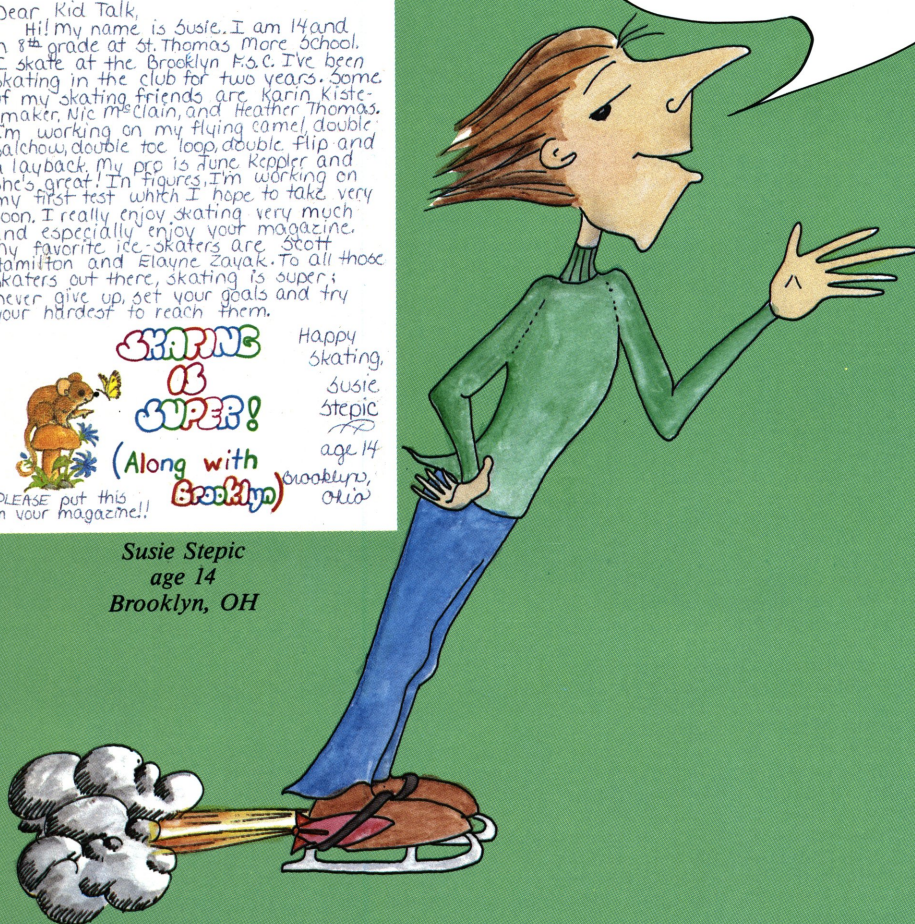 Dear Kid Talk,
Hi! my name is Susie. I am 14 and
n 8th grade at St. Thomas More School.
I skate at the Brooklyn F.S.C. I've been
skating in the club for two years. Some
of my skating friends are Karin Kiste-
maker, Nic McClain, and Heather Thomas.
I'm working on my flying camel, double
salchow, double toe loop, double flip and
a layback. My pro is June Keppler and
she's great! In figures, I'm working on
my first test which I hope to take very
soon. I really enjoy skating very much
and especially enjoy your magazine.
my favorite ice-skaters are Scott
Hamilton and Elayne Zayak. To all those
skaters out there, skating is super;
never give up, set your goals and try
your hardest to reach them.
SKATING
IS
SUPER!
(Along with
Brooklyn)
Happy
skating,
Susie
Stepic
age 14
Brooklyn,
Ohio
PLEASE put this
n your magazine!!
Susie Stepic
age 14
Brooklyn, OH